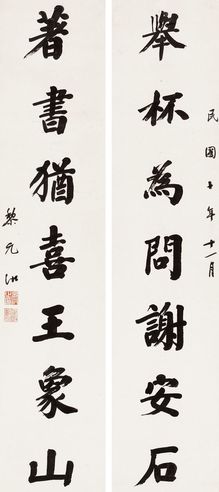 民國十年十一月
舉杯為問謝安石
著書猶喜王象山
黎元洪